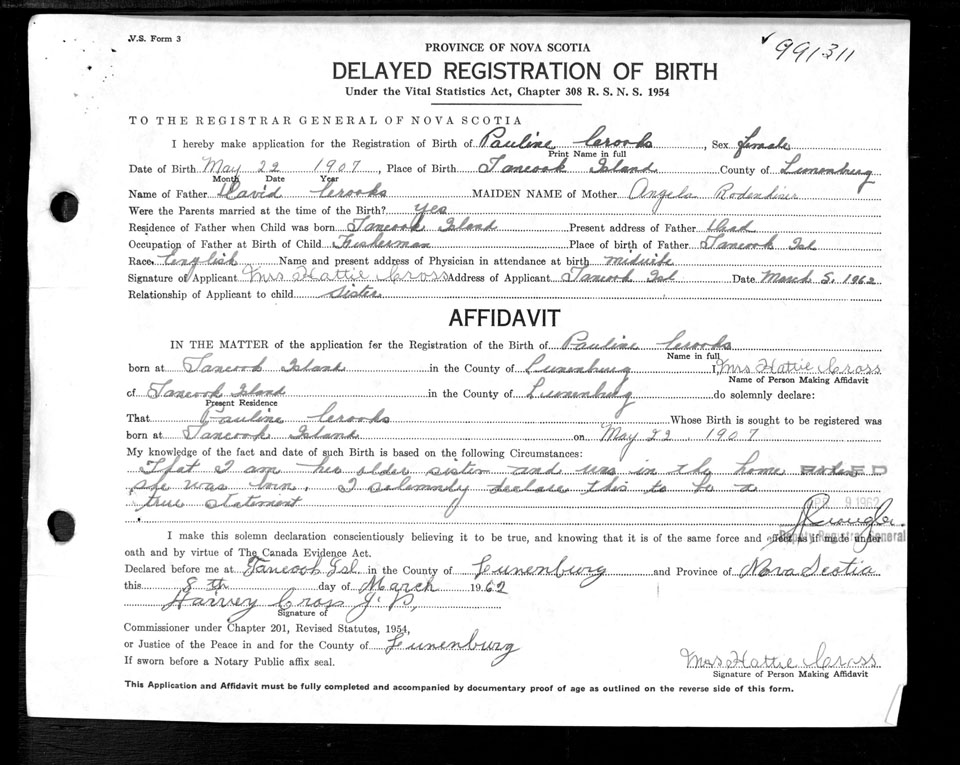 V.S. Form 3
991311
PROVINCE OF NOVA SCOTIA
DELAYED REGISTRATION OF BIRTH
Under the Vital Statistics Act, Chapter 308 R. S. N. S. 1954
TO THE REGISTRAR GENERAL OF NOVA SCOTIA
I hereby make application for the Registration of Birth of Pauline Crooks, Sex female
Print Name in full
Date of Birth May 22 1907, Place of Birth Tancook Island County of Lunenburg
Month Date Year
Name of Father David Crooks MAIDEN NAME of Mother Angela Rodenhiser
Were the Parents married at the time of the Birth? yes
Residence of Father when Child was born Tancook Island Present address of Father Dead
Occupation of Father at Birth of Child Fisherman Place of birth of Father Tancook Isl
Race English Name and present address of Physician in attendance at birth midwife
Signature of Applicant Mrs Hattie Cross Address of Applicant Tancook Isl Date March 5, 1962
Relationship of Applicant to child sister
AFFIDAVIT
IN THE MATTER of the application for the Registration of the Birth of Pauline Crooks
Name in full
born at Tancook Island in the County of Lunenburg I, Mrs Hattie Cross
Name of Person Making Affidavit
of Tancook Island in the County of Lunenburg do solemnly declare:
Present Residence
That Pauline Crooks Whose Birth is sought to be registered was
born at Tancook Island on May 22 1907
My knowledge of the fact and date of such Birth is based on the following Circumstances:
That I am her older sister and was in the home when
she was born. I solemnly declare this to be a
true statement
9 1962
Deputy Registrar General
I make this solemn declaration conscientiously believing it to be true, and knowing that it is of the same force and effect as if made under
oath and by virtue of The Canada Evidence Act.
Declared before me at Tancook Isl in the County of Lunenburg and Province of Nova Scotia
this 8th day of March 1962
Harvey Cross J. P.
Signature of
Commissioner under Chapter 201, Revised Statutes, 1954,
or Justice of the Peace in and for the County of Lunenburg
If sworn before a Notary Public affix seal.
Mrs Hattie Cross
Signature of Person Making Affidavit
This Application and Affidavit must be fully completed and accompanied by documentary proof of age as outlined on the reverse side of this form.